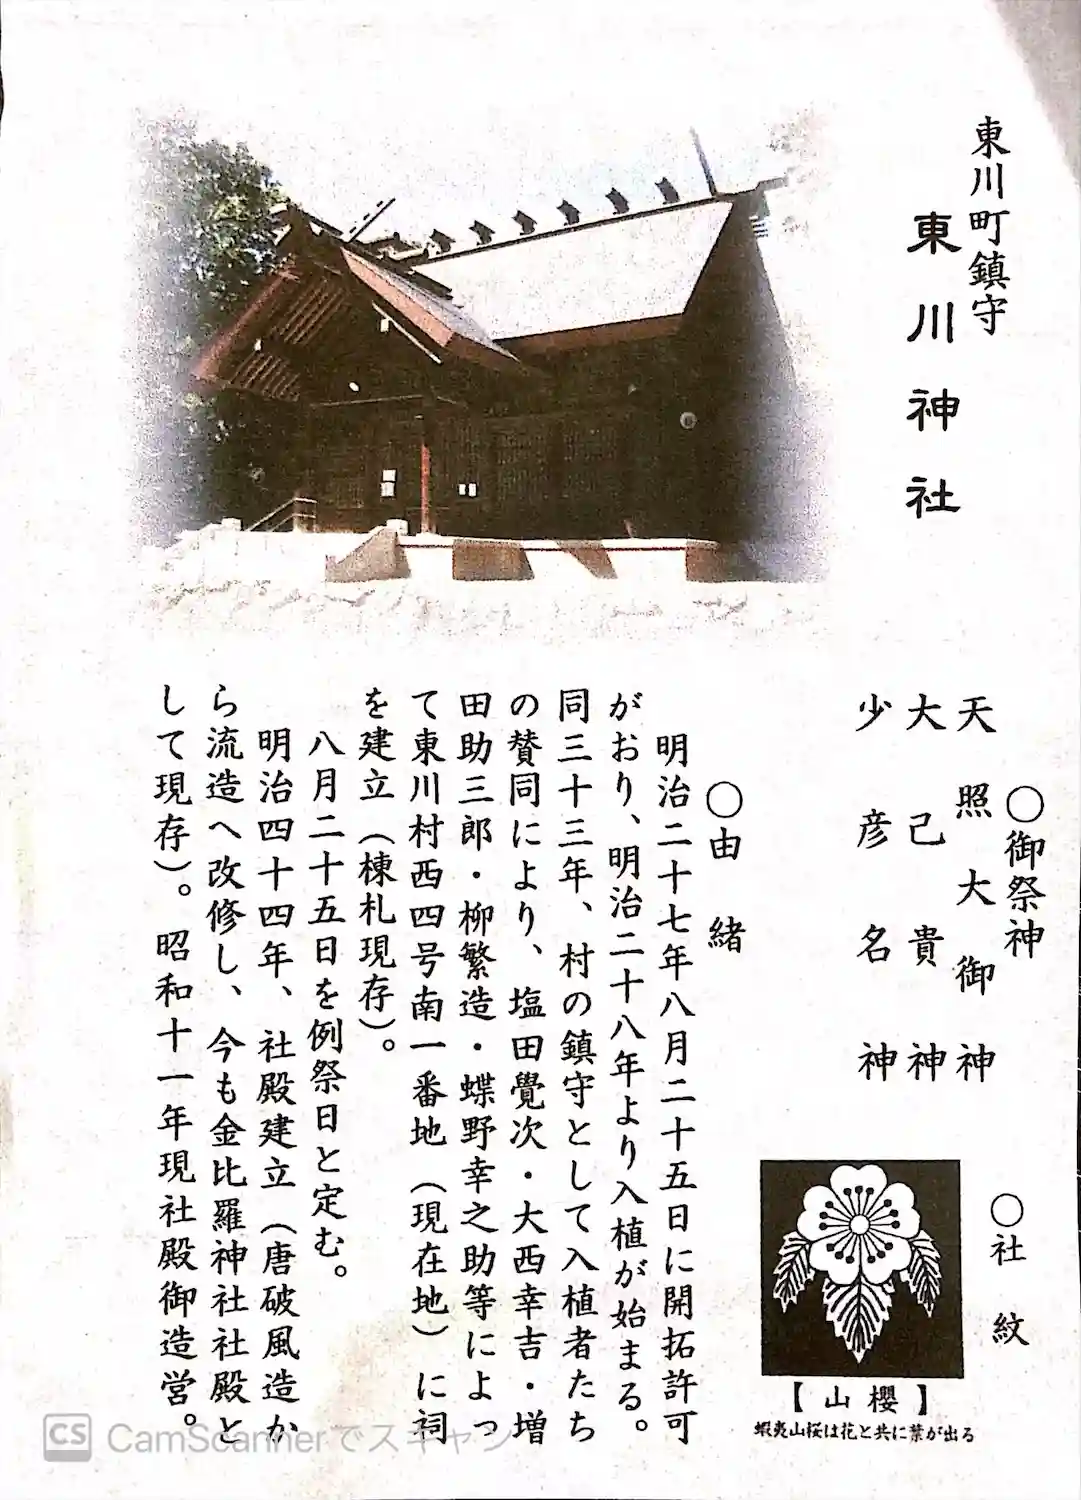 東川町鎮守
東川神社
〇御祭神
天照大御神
大己貴神
少彦名神
〇社紋
【山櫻】
蝦夷山桜は花と共に葉が出る
〇由緒
明治二十七年八月二十五日に開拓許可
がおり、明治二十八年より入植が始まる。
同三十三年、村の鎮守として入植者たち
の賛同により、塩田覺次・大西幸吉・増
田助三郎・柳繁造・蝶野幸之助等によっ
て東川村西四号南一番地（現在地）に祠
を建立（棟札現存）。
八月二十五日を例祭日と定む。
明治四十四年、社殿建立（唐破風造か
ら流造へ改修し、今も金比羅神社社殿と
して現存）。昭和十一年現社殿御造営。
CS CamScannerでスキャン